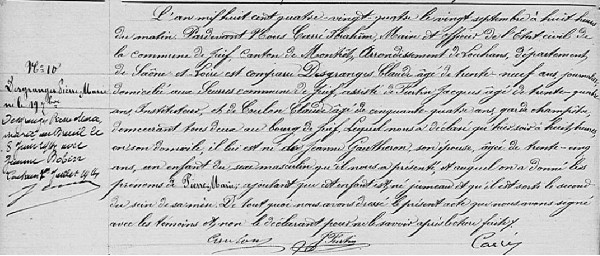 L'an mil huit cent quatre vingt quatre le vingt septembre à huit heures
du matin Pardevant Nous Carré Maire et officier de l'Etat civil de
la commune de Juif Canton de Montret, Arrondissement de Louhans, département
de Saône et Loire est comparu Desgranges Claude âgé de trente-neuf ans, journalier
domicilié aux commune de Juif, assisté de Jacques âgé de trente-quatre
ans, Instituteur, et de Coulon Claude âgé de cinquante-quatre ans, garde champêtre,
demeurant tous deux au bourg de Juif, Lequel nous a déclaré qu'hier soir à heures,
en son domicile, il lui est né de Jeanne son épouse, âgée de trente-cinq
ans, un enfant du sexe masculin qu'il nous a présenté, et auquel on a donné les
prénoms de Pierre, Marie, ajoutant que cet enfant est né jumeau et qu'il est sorti le second
du sein de sa mère. De tout quoi nous avons dressé le présent acte que nous avons signé
avec les témoins et non le déclarant pour ne le savoir après lecture faite.
Coulon
Carré
N° 10
Desgranges Pierre, Marie
né le 19 7bre
marié au Breuil le
8 Juin avec
Jeanne
Louhans Juillet